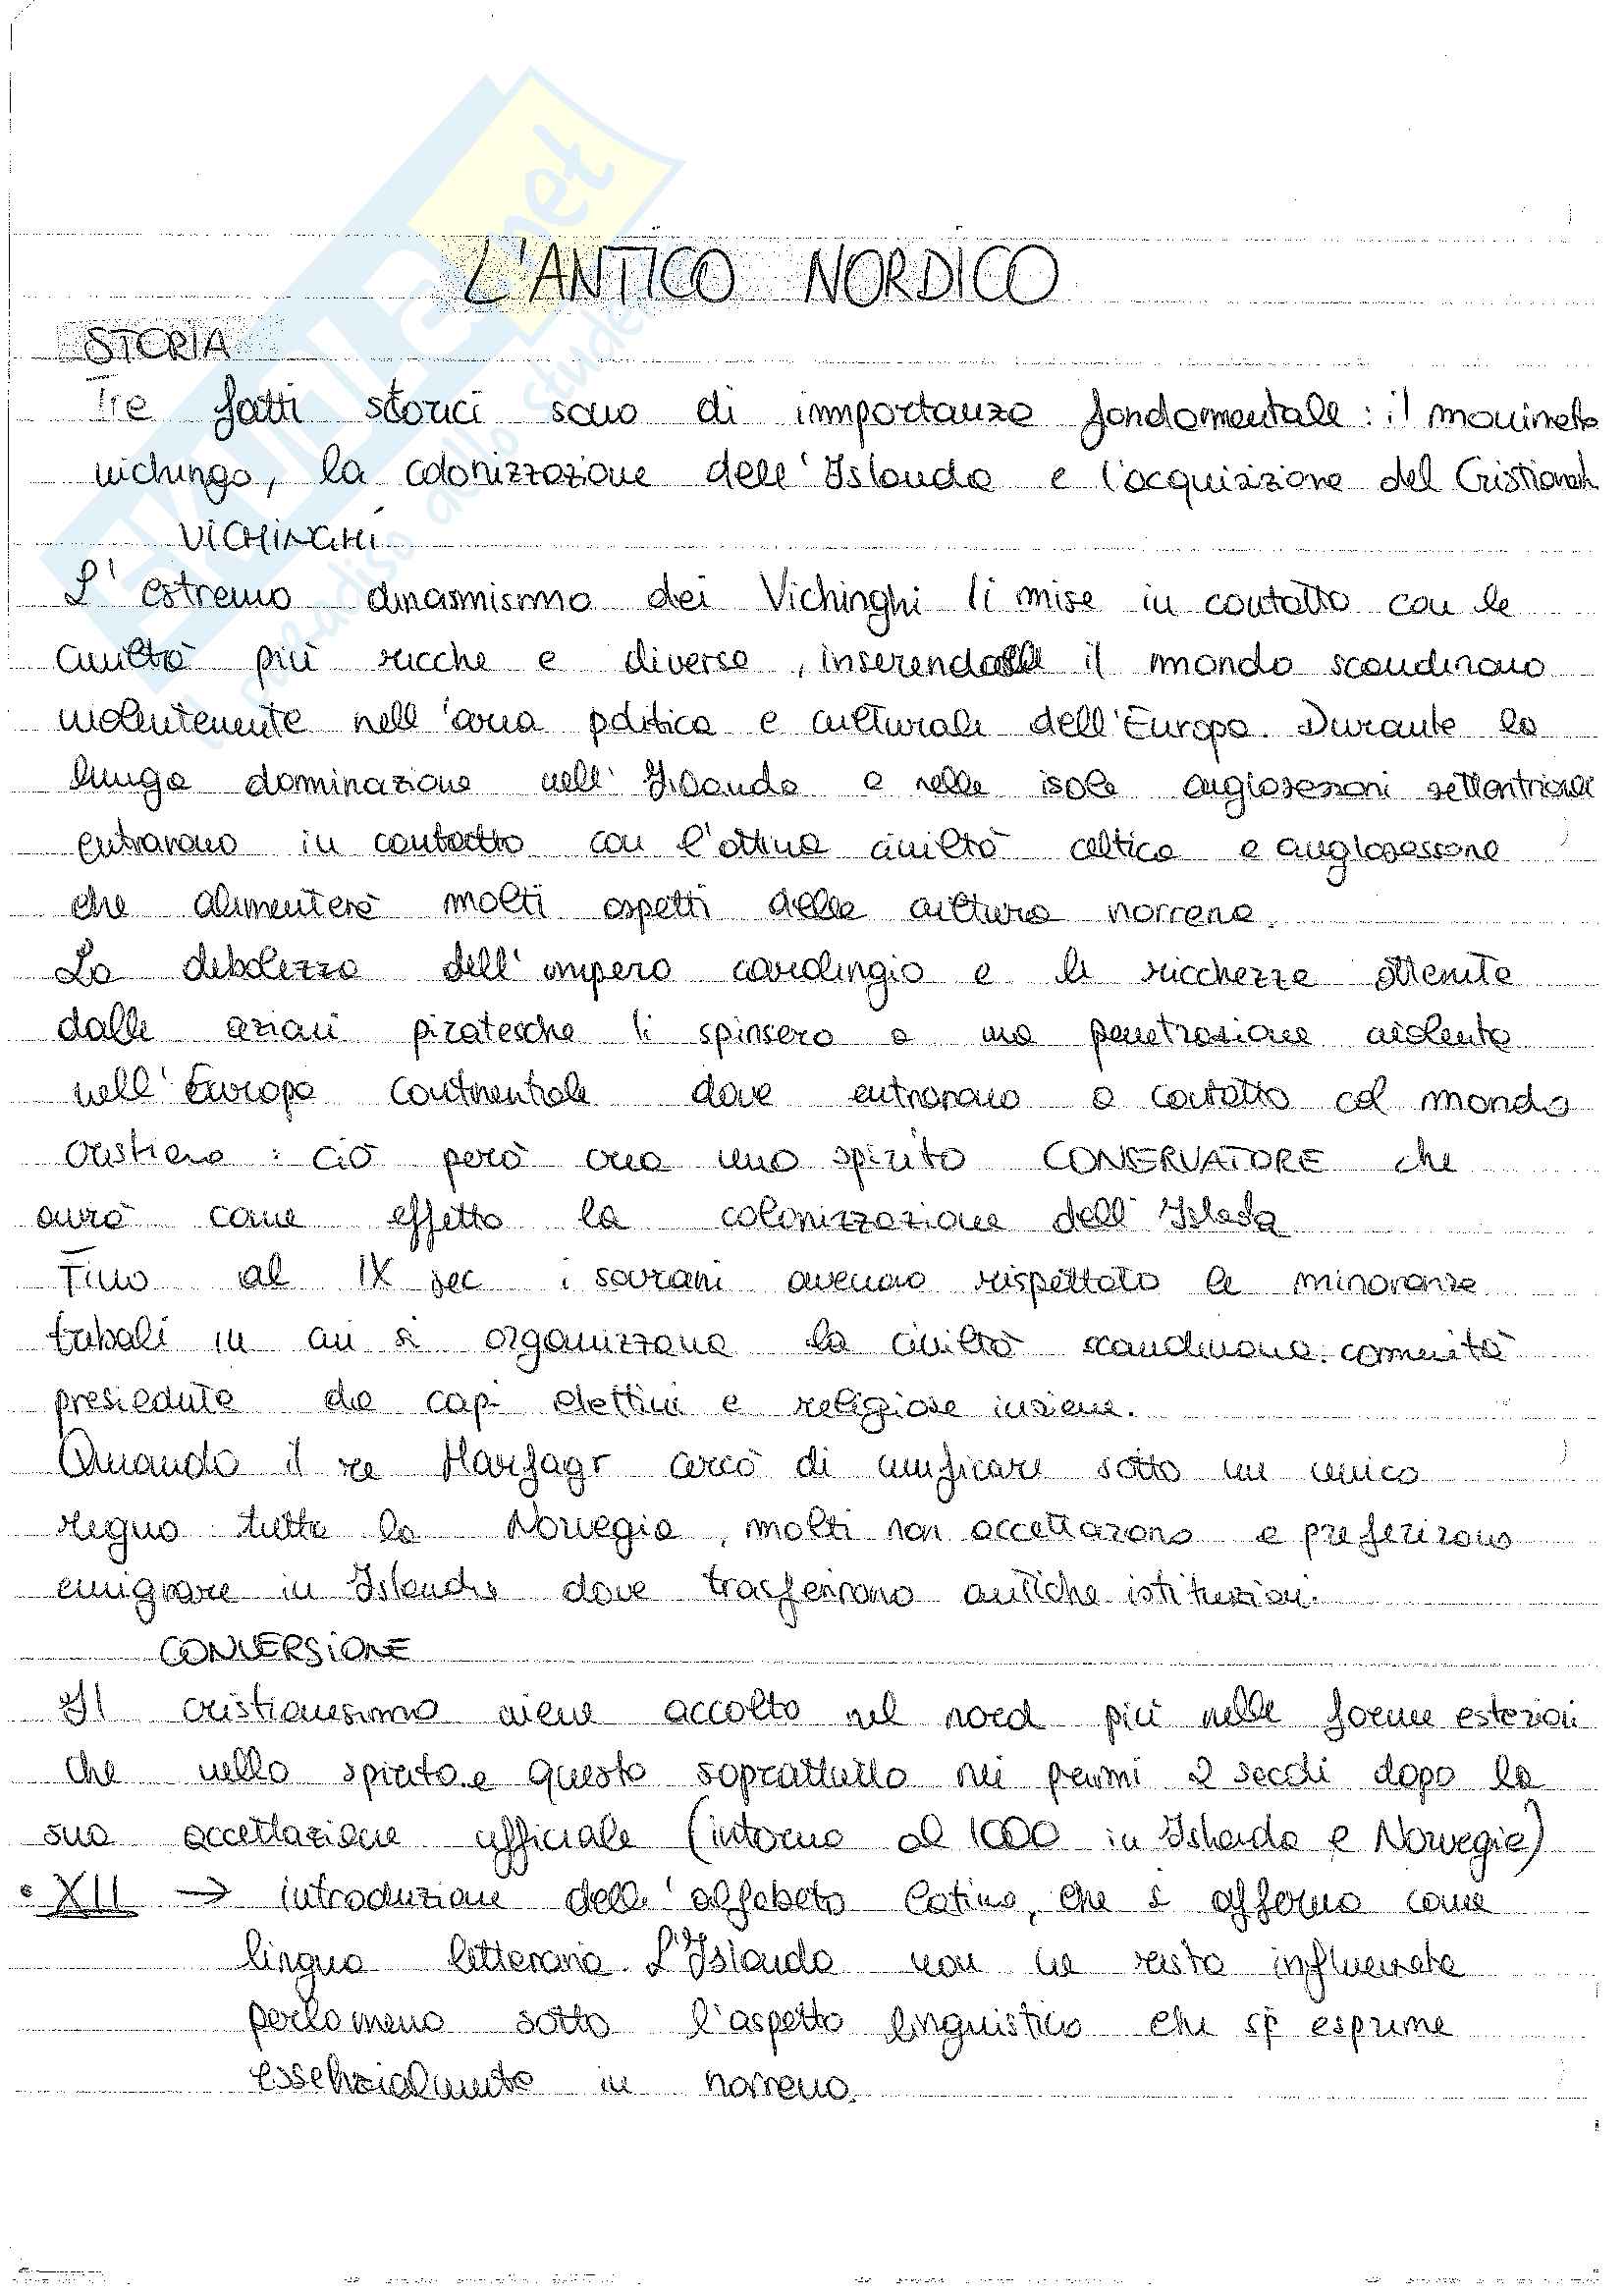 L'ANTICO NORDICO
STORIA
Tre fatti storici sono di importanza fondamentale: il movimeto
vichingo, la colonizzazione dell'Islanda e l'acquisizione del
VICHINGHI
L'estremo dinamismo dei Vichinghi li mise in contatto con le
civiltà più ricche e diverse, il mondo scandinavo
violentemente nell'area politica e culturale dell'Europa. Durante la
lunga dominazione nell'Irlanda e nelle isole anglosassoni settentrionali
entrarono in contatto con l'ottima civiltà celtica e anglosassone
che alimenterà molti aspetti della cultura norrena.
La debolezza dell'impero carolingio e le ricchezze ottenute
dalle azioni piratesche li spinsero a una penetrazione violenta
nell'Europa continentale dove entrarono a contatto col mondo
cristiano: ciò però crea uno spirito CONSERVATORE che
avrà come effetto la colonizzazione dell'
Fino al IX sec i sovrani avevano rispettato le minoranze
tribali in cui si organizzava la civiltà scandinava: comunità
presiedute da capi elettivi e religiose insieme.
Quando il re Harfagr cercò di unificare sotto un unico
regno tutta la Norvegia, molti non accettarono e preferirono
emigrare in Islanda dove trasferirono antiche istituzioni.
CONVERSIONE
Il cristianesimo viene accolto nel nord più nelle forme esteriori
che nello spirito e questo soprattutto nei primi 2 secoli dopo la
sua accettazione ufficiale (intorno al 1000 in Islanda e Norvegia)
• XII → introduzione dell'alfabeto latino, che si afferma come
lingua letteraria. L'Islanda non ne resta influenzata
perlomeno sotto l'aspetto linguistico che si esprime
essenzialmente in norreno.